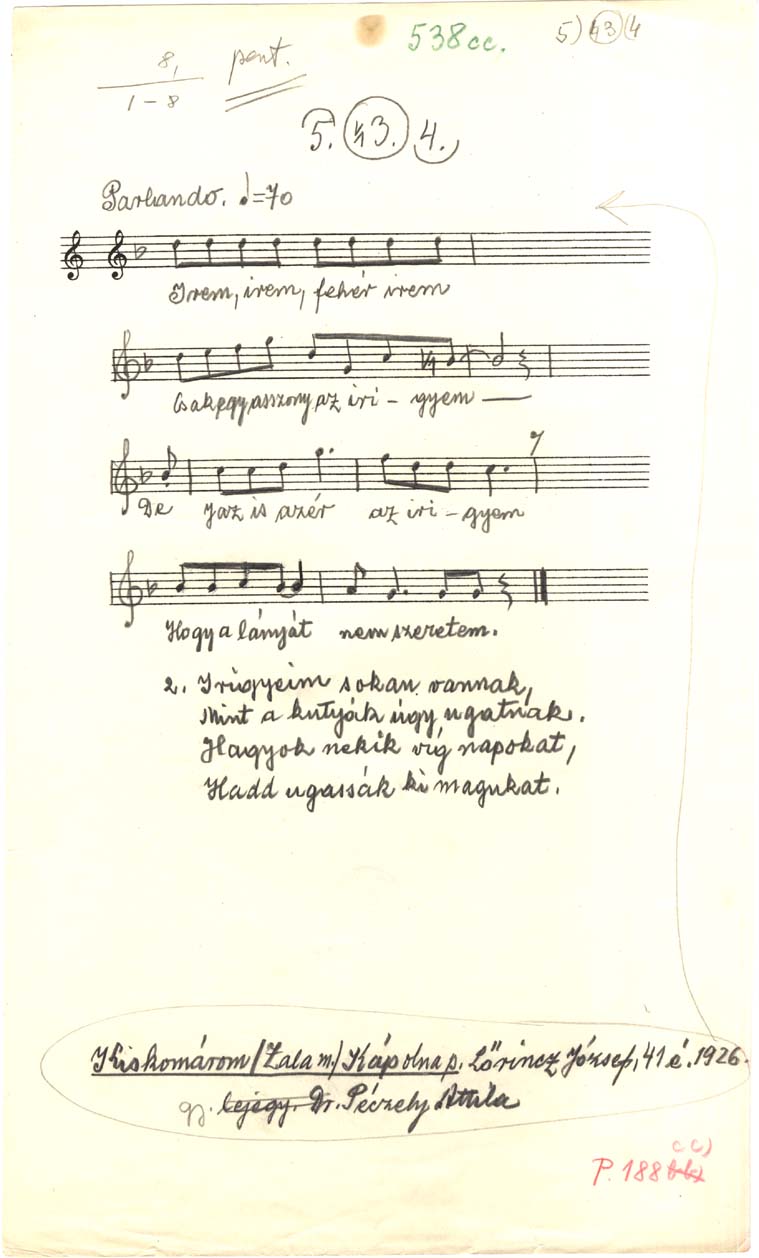 538 cc. 5) ♮3 (4
8,
1-8
pent.
5. ♮3. 4.
Parlando. ♩=70
Irem, irem, fehér irem
Csak egy asszony az iri - gyem
De jaz is azér az iri - gyem
Hogy a lányát nem szeretem.
2. Irigyeim sokan vannak,
Mint a kutyák úgy ugatnak.
Hagyok nekik víg napokat,
Hadd ugassák ki magukat.
Kiskomárom/Zala m./ Kápolna p. Lőrincz József, 41 é. 1926.
gy. lejegy. Dr. Péczely Attila
cc)
P. 188 bb)